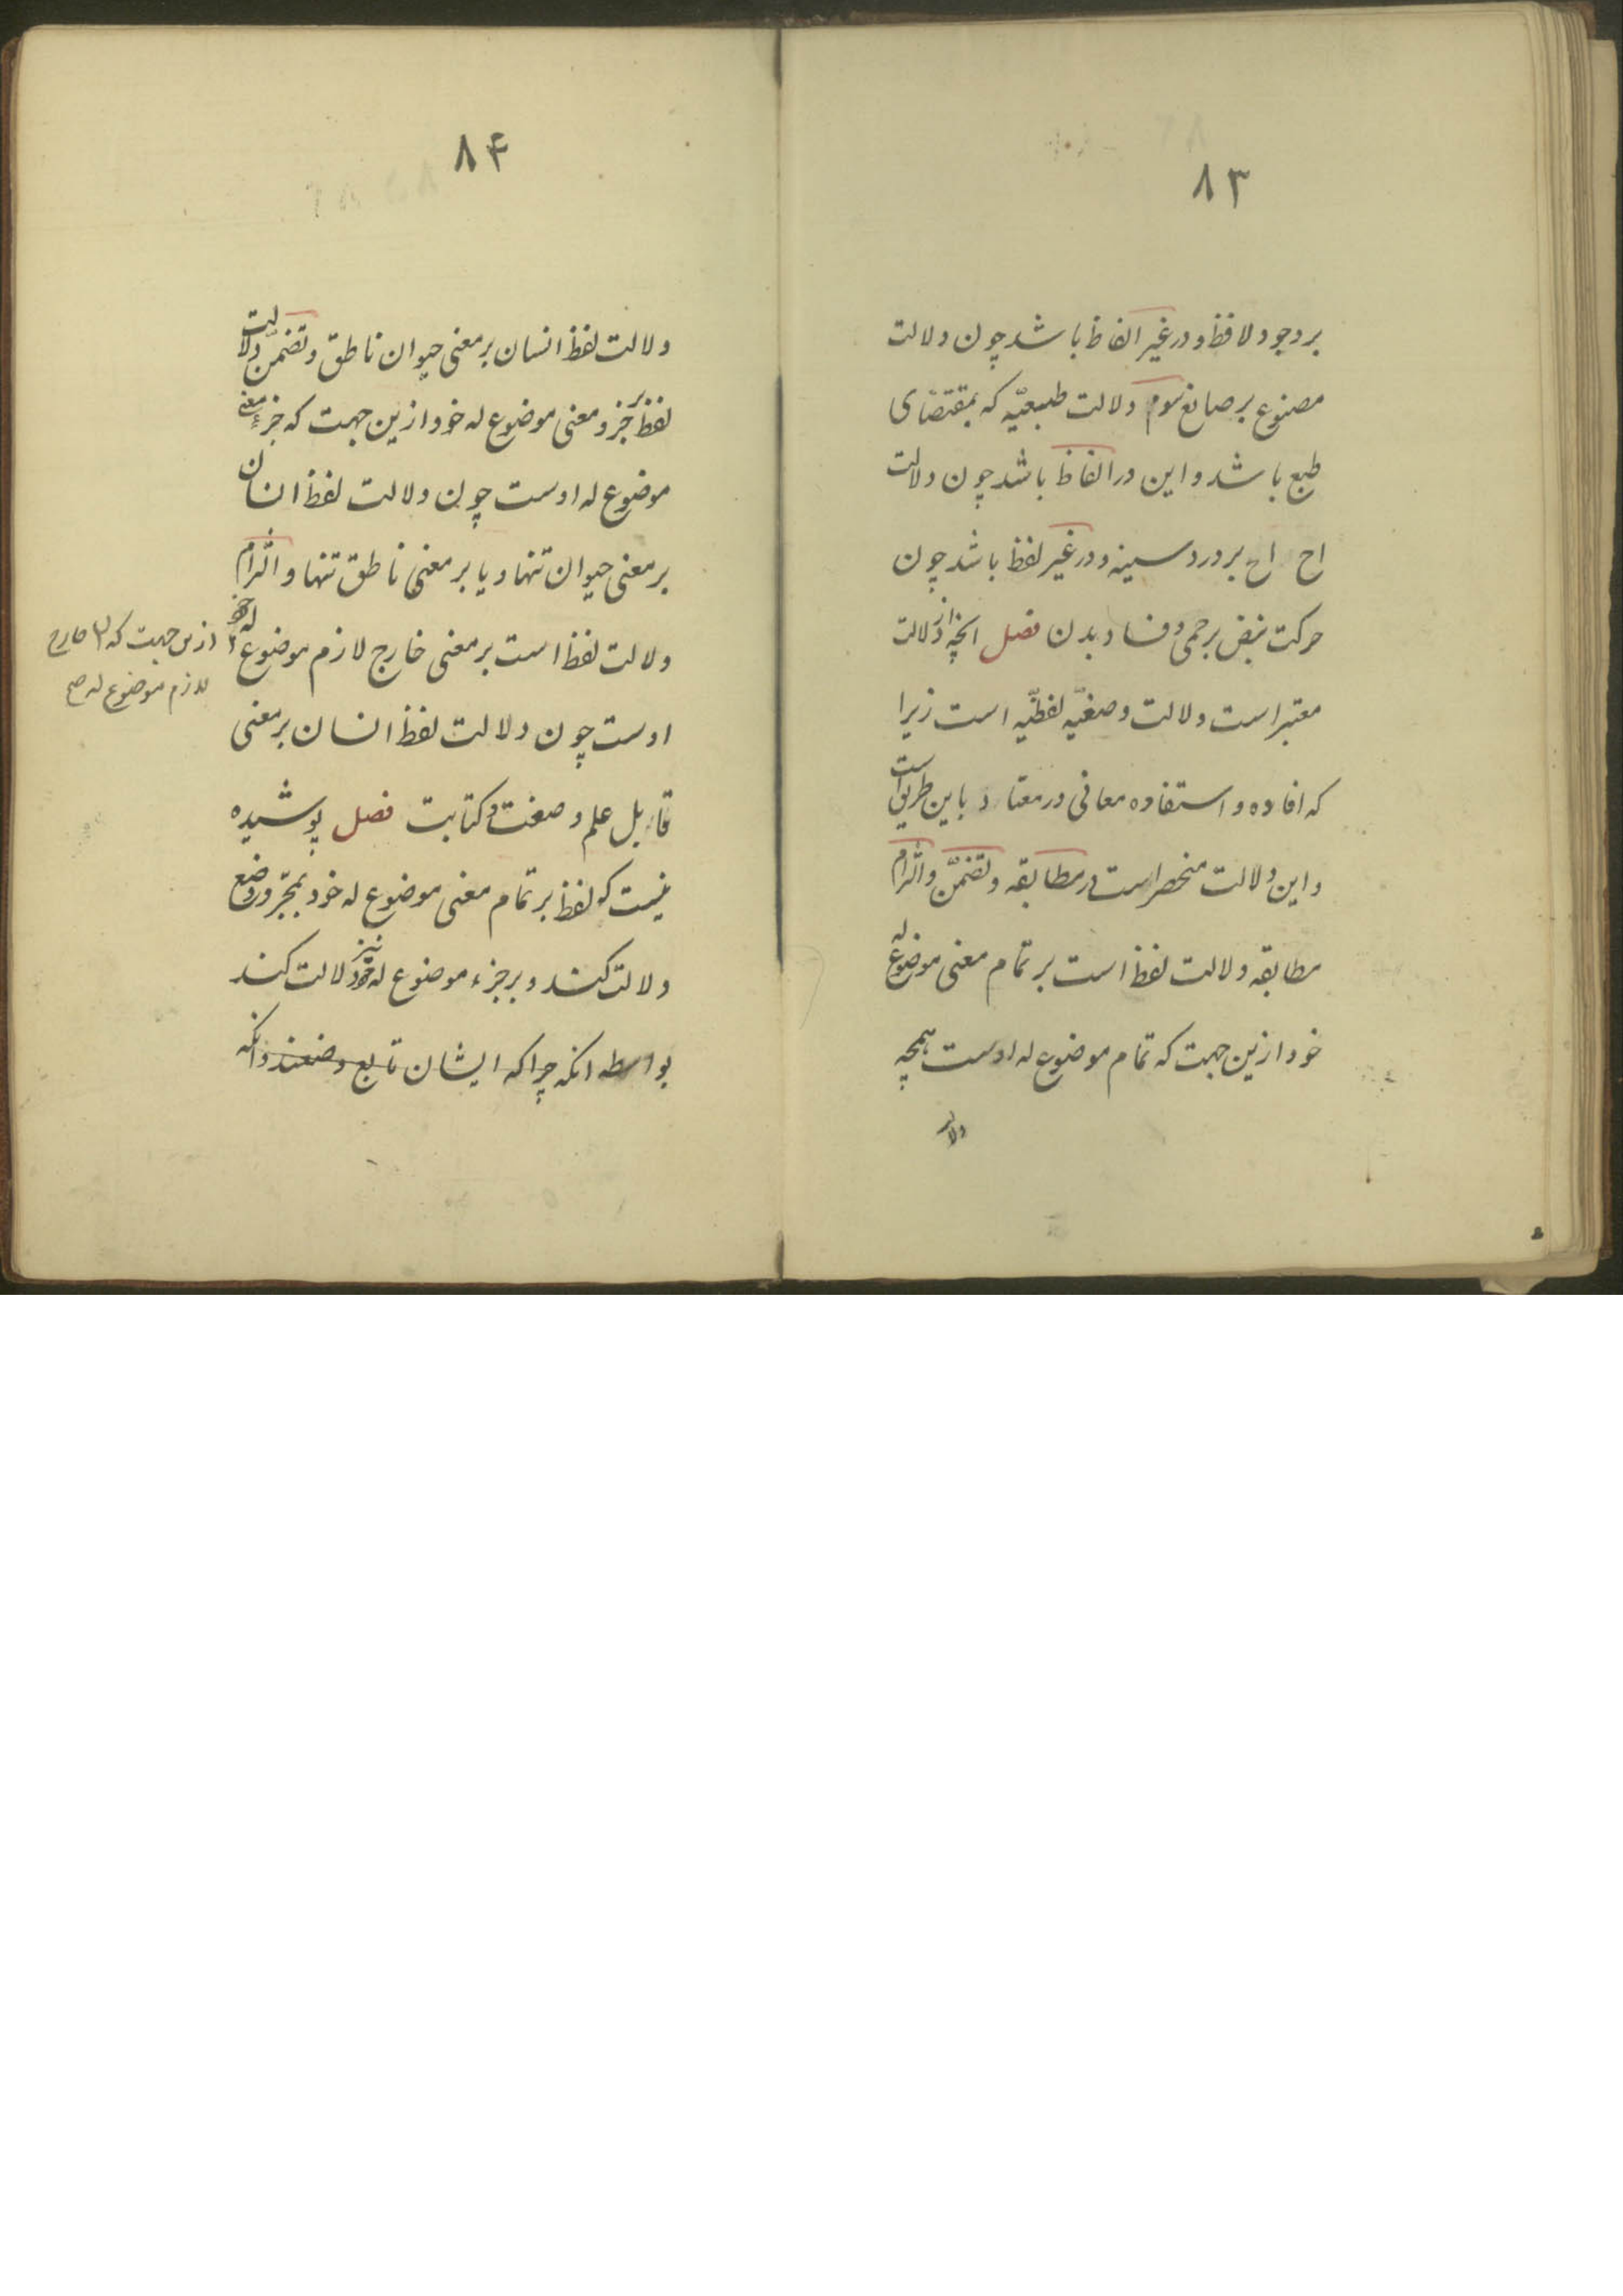 ۸۳
بر وجود لافظ و در غیر الفاظ باشد چون دلالت
مصنوع بر صانع سوم دلالت طبیعیّه که بمقتضای
طبع باشد و این در الفاظ باشد چون دلالت
اح اح بر درد سینه و در غیر لفظ باشد چون
حرکت نبض بر حمی و فساد بدن فصل انچه از دلالت
معتبر است دلالت وضعیّه لفظیّه است زیرا
که افاده و استفاده معانی در معتاد باین طریق است
و این دلالت منحصر است در مطابقه و تضمّن و التزام
مطابقه دلالت لفظ است بر تمام معنی موضوع له
خود ازین جهت که تمام موضوع له اوست همچه
دلا
۸۴
دلالت لفظ انسان بر معنی حیوان ناطق و تضمّن دلالت
لفظ بر جزو معنی موضوع له خود ازین جهت که جزء معنی
موضوع له اوست چون دلالت لفظ انسان
بر معنی حیوان تنها و یا بر معنی ناطق تنها و التزام
دلالت لفظ است بر معنی خارج لازم موضوع له خود
ازین جهت که خارج
لازم موضوع له صح
اوست چون دلالت لفظ انسان بر معنی
قابل علم و صنعت و کتابت فصل پوشیده
نیست که لفظ بر تمام معنی موضوع له خود بمجرّد وضع
دلالت کند و بر جزء موضوع له خود نیز دلالت کند
بواسطه انکه چرا که ایشان تابع وضعند وانکه